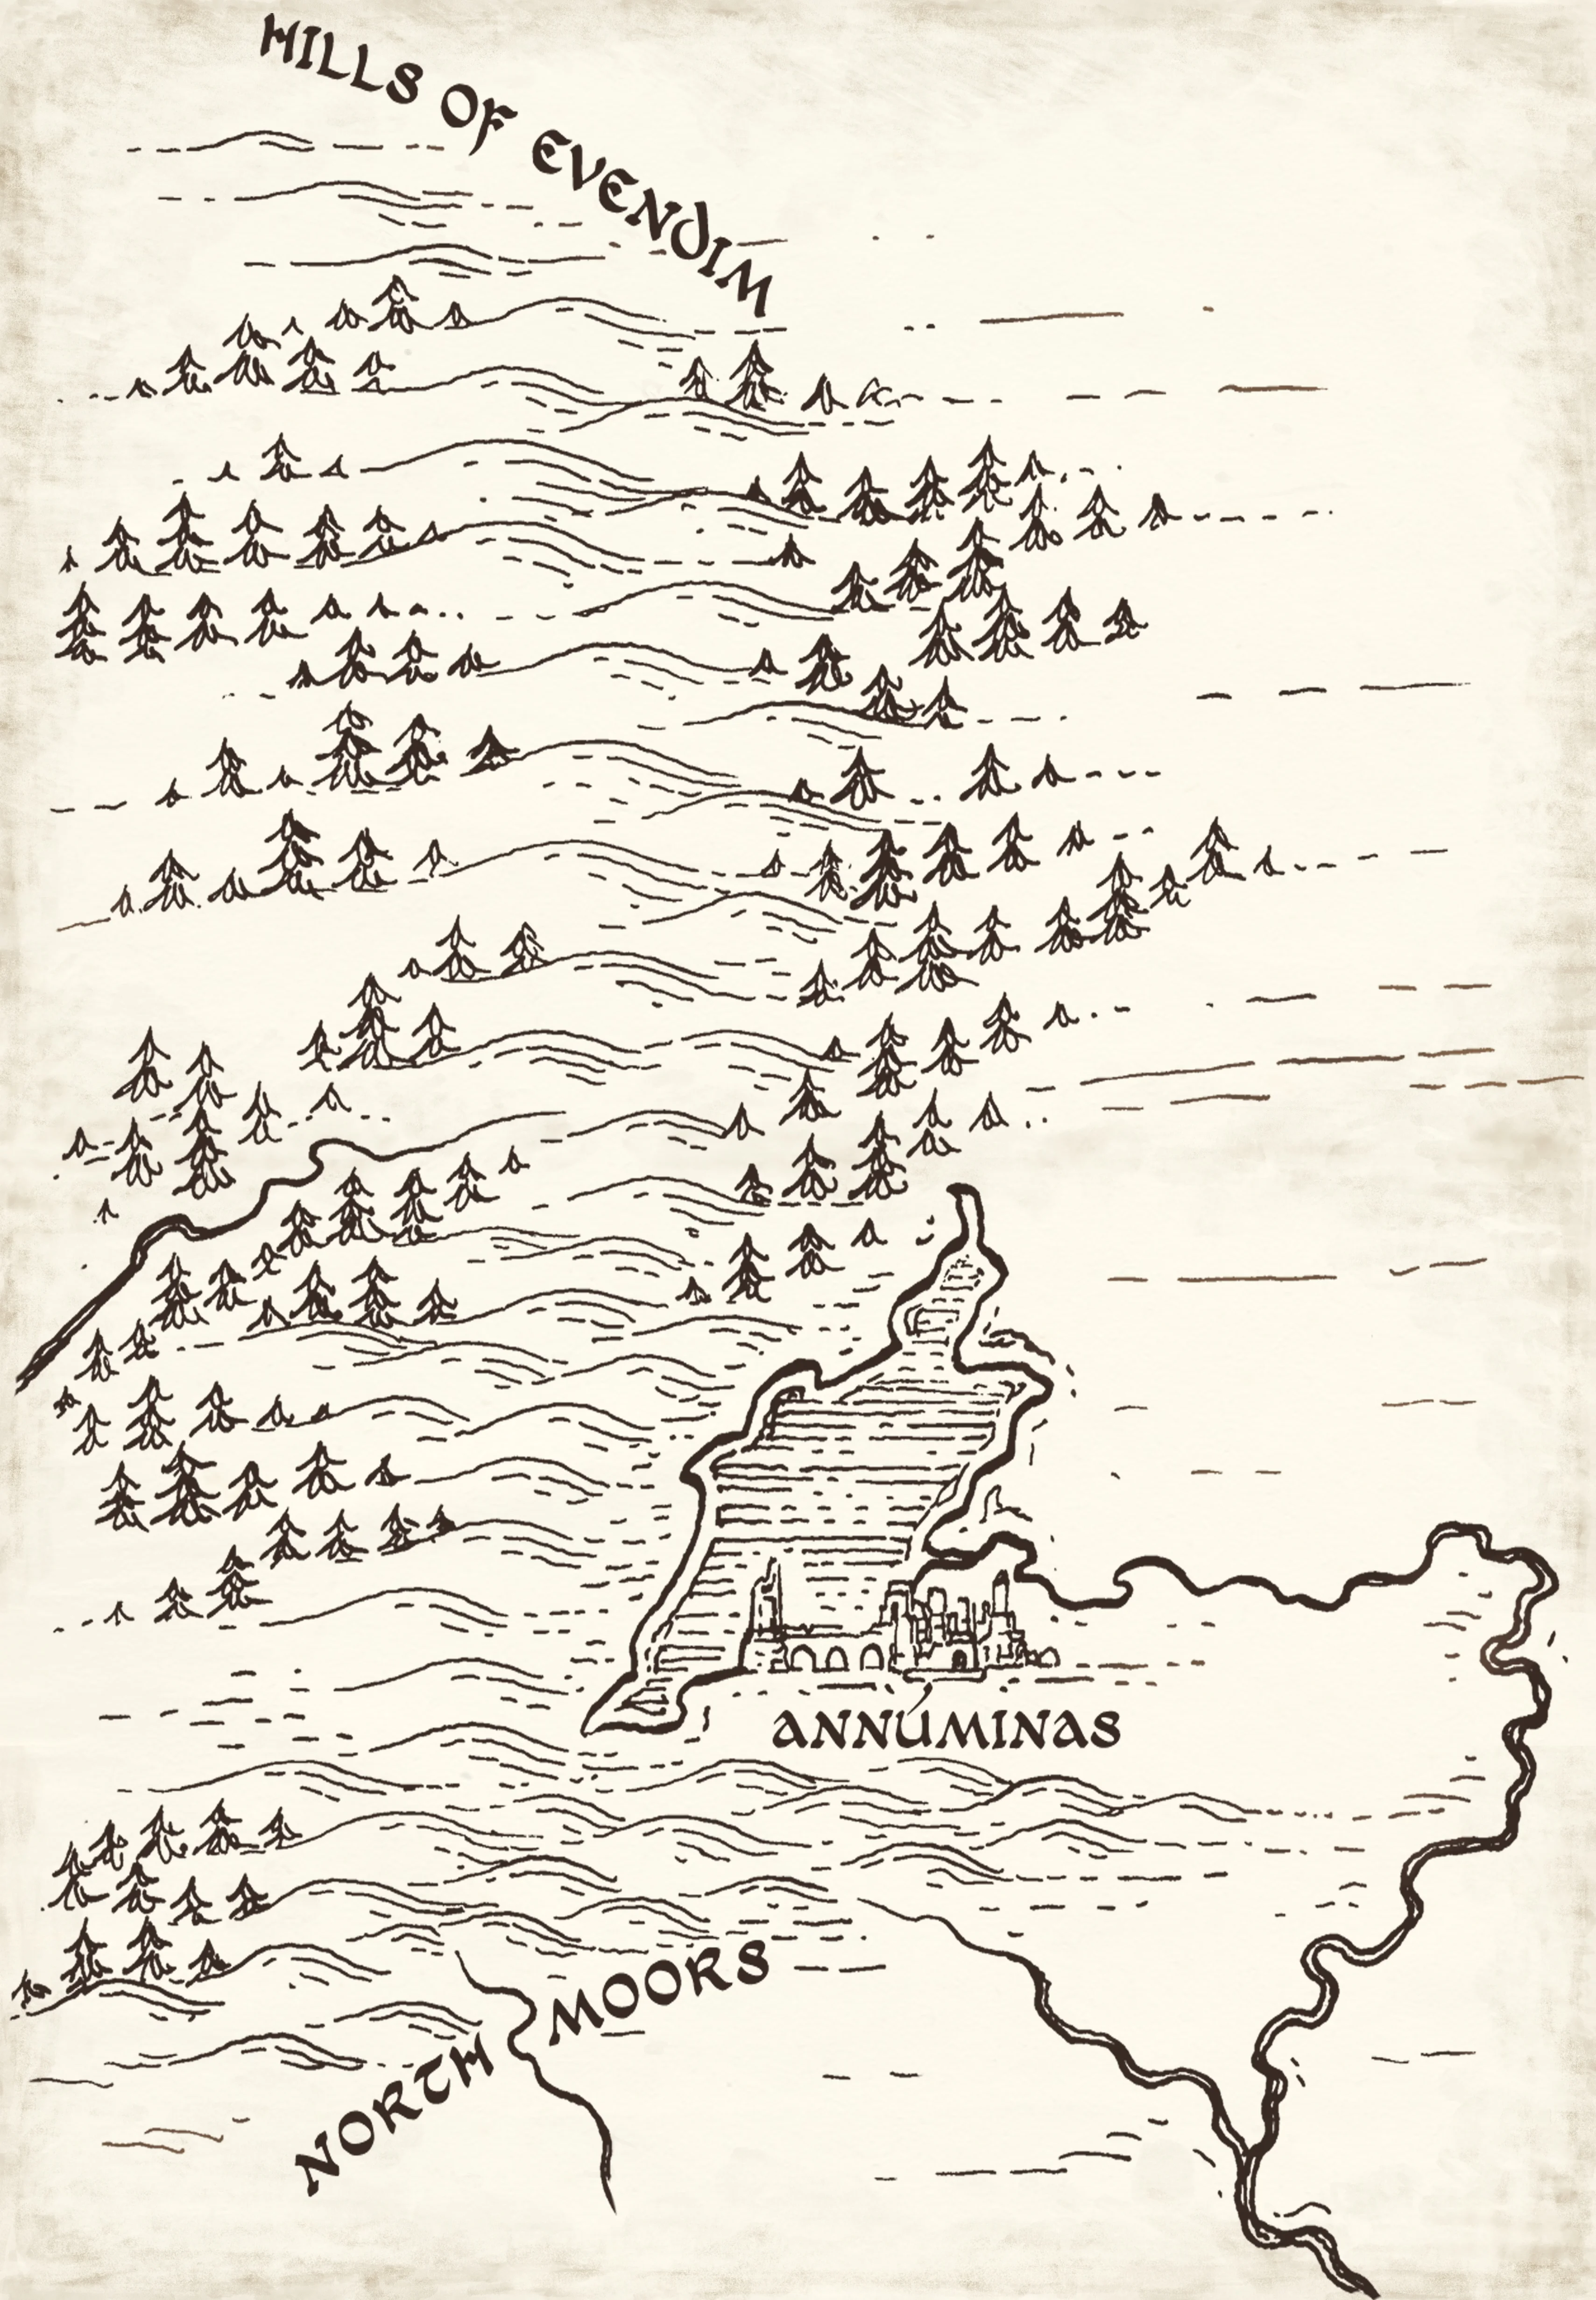 HILLS OF EVENDIM
ANNÚMINAS
NORTH MOORS